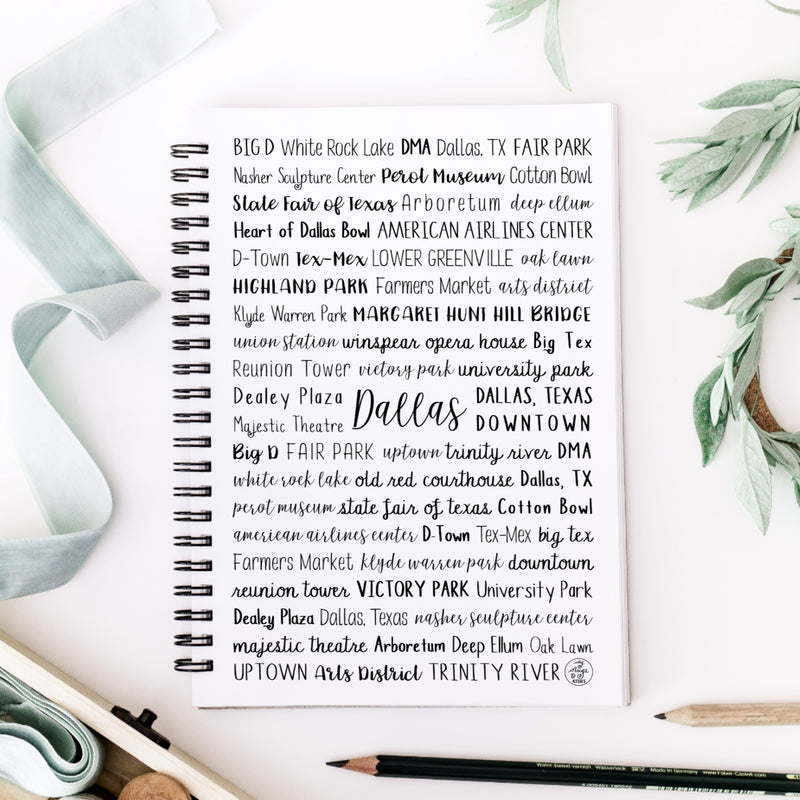 BIG D White Rock Lake DMA Dallas, TX FAIR PARK
Nasher Sculpture Center Perot Museum Cotton Bowl
State Fair of Texas Arboretum deep ellum
Heart of Dallas Bowl AMERICAN AIRLINES CENTER
D-Town Tex-Mex LOWER GREENVILLE oak lawn
HIGHLAND PARK Farmers Market arts district
Klyde Warren Park MARGARET HUNT HILL BRIDGE
union station winspear opera house Big Tex
Reunion Tower victory park university park
Dealey Plaza Dallas DALLAS, TEXAS
Majestic Theatre DOWNTOWN
Big D FAIR PARK uptown trinity river DMA
white rock lake old red courthouse Dallas, TX
perot museum state fair of texas Cotton Bowl
american airlines center D-Town Tex-Mex big tex
Farmers Market klyde warren park downtown
reunion tower VICTORY PARK University Park
Dealey Plaza Dallas, Texas nasher sculpture center
majestic theatre Arboretum Deep Ellum Oak Lawn
UPTOWN Arts District TRINITY RIVER
Made in Germany www.Faber-Castell.com